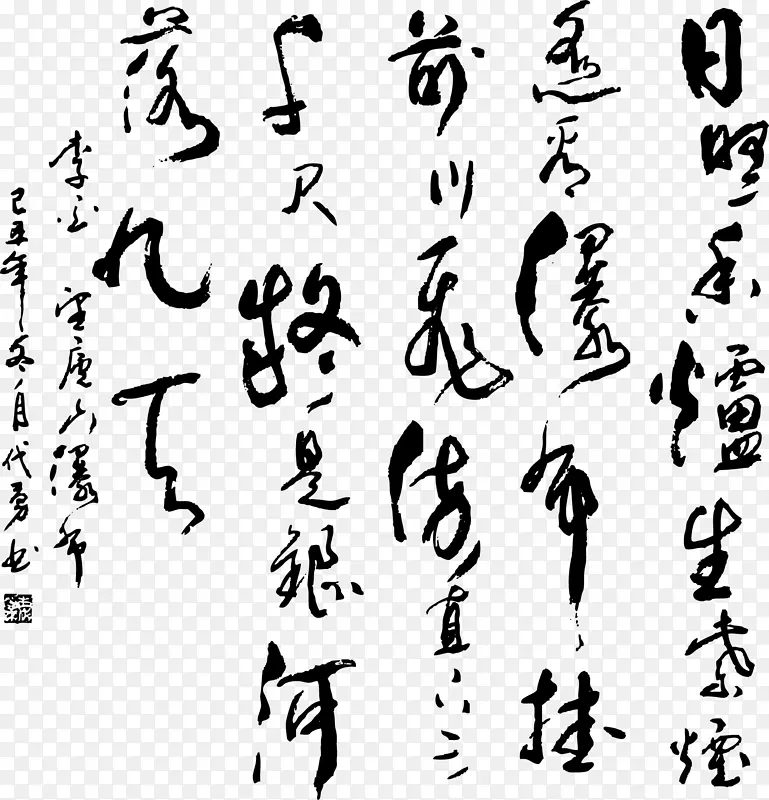 日照香爐生紫煙
遙看瀑布掛
前川飛流直下三
千尺疑是銀河
落九天
李白望廬山瀑布
己丑年冬月代勇书